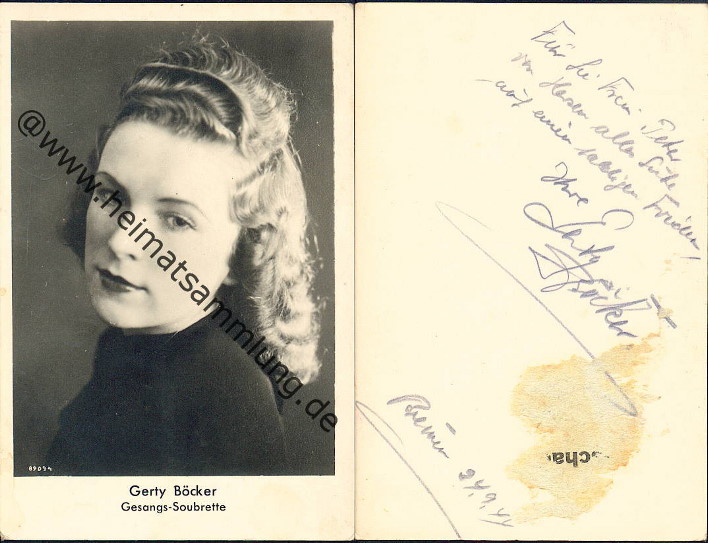 @www.heimatsammlung.de
89094
Gerty Böcker
Gesangs-Soubrette
Für Sie Frau Peter
von Herzen alles Gute
auf einen baldigen Frieden,
Ihre
Gerty
Böcker
scha
Bremen 24.9.44